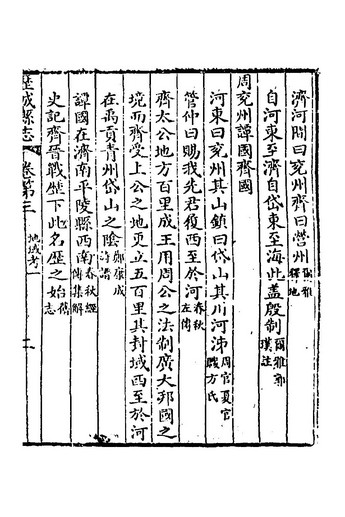 濟河間曰兖州齊曰營州爾雅釋地
自河東至濟自岱東至海此盖殷制爾雅郭璞註
周兖州譚國齊國
河東曰兖州其山鎮曰岱山其川河泲周官夏官職方氏
管仲曰賜我先君履西至於河春秋左傳
齊太公地方百里成王用周公之法制廣大邦國之
境而齊受上公之地更立五百里其封域西至於河
在禹貢青州岱山之陰鄭康成詩譜
譚國在濟南平陵縣西南春秋經傳集解
史記齊晉戰歷下此名歷之始舊志
歷城縣志 卷第三 地域考一 二